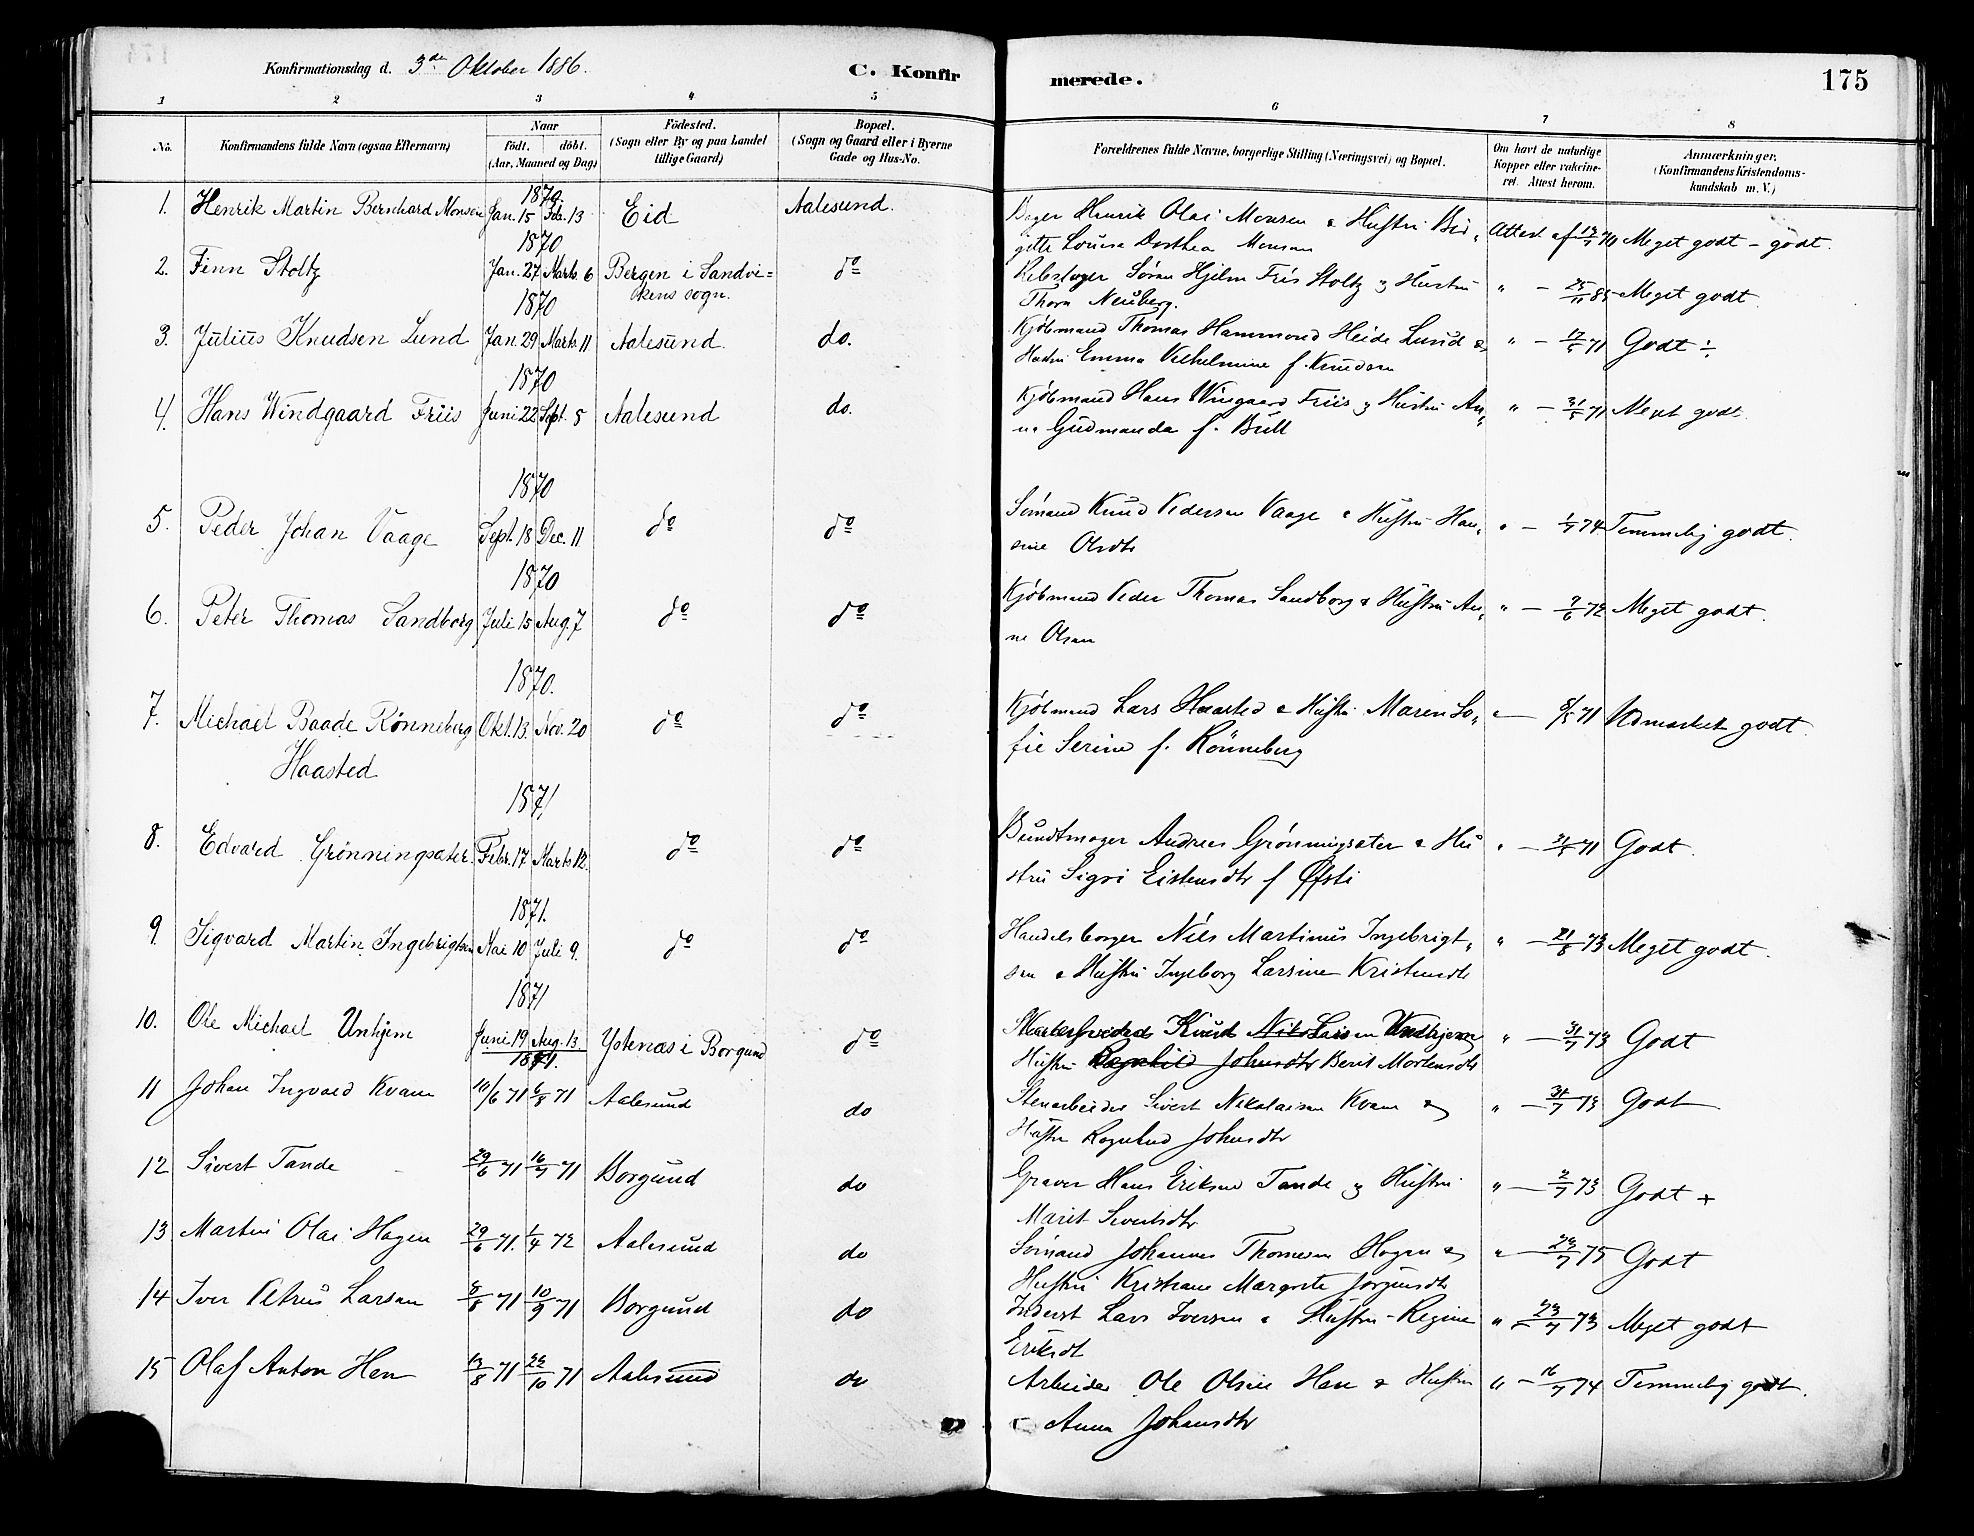 Konfirmationsdag d. 3de Oktober 1886.
C. Konfirmerede.
175
1 2 3 4 5 6 7 8
No. Konfirmandens fulde Navn (ogsaa Efternavn) Naar födt. döbt. (Aar, Maaned og Dag) Födested. (Sogn eller By og paa Landet tillige Gaard) Bopæl. (Sogn og Gaard eller i Byerne Gade og Hus-No. Forældrenes fulde Navne, borgerlige Stilling (Næringsvei) og Bopæl. Om havt de naturlige Kopper eller vakcineret. Attest herom. Anmærkninger. (Konfirmandens Kristendomskundskab m. V.)
1870
1. Henrik Martin Bernhard Monsen Jan. 15 Feb. 13 Eid Aalesund. Bager Henrik Olai Monsen & Hustru Bir-
gitte Lovisa Dorthea Monsen Attest af 70 Meget godt - godt.
1870
2. Finn Stoltz Jan. 27 Marts 6 Bergen i Sandvi=
kens sogn. do Rebslager Sören Hjelm Friis Stoltz og Hustru
Thora Neuberg. " - 25/11 85 Meget godt
1870
3. Julius Knudsen Lund Jan. 29 Marts 11 Aalesund. do. Kjøbmand Thomas Hammond Heide Lund &
Hustru Emma Vilhelmine f. Knudsen " - 17/5 71 Godt ÷
1870
4. Hans Windgaard Friis Juni 22 Sept. 5 Aalesund do. Kjøbmand Hans Wingaard Friis og Hustru An-
na Gudmanda f. Bull " - 31/5 71 Meget godt
1870
5. Peder Johan Vaage Sept. 18 Dec. 11 do do Sømand Knud Pedersen Vaage & Hustru Han-
sine Olsdtr " - 1/7 74 Temmelig godt.
1870
6. Peter Thomas Sandborg Juli 15 Aug. 7 do do Kjøbmand Peder Thomas Sandborg & Hustru An-
ne Olsen " - 7/6 72 Meget godt.
1870.
7. Michael Baade Rönneberg Okt. 13. Nov. 20 do do Kjøbmand Lars Haasted & Hustru Maren So-
Haasted
fie Serine f. Rönneberg " - 8/5 71 Udmærket godt.
1871
8. Edvard Grönningsæter Febr. 17 Marts 12. do do Bundtmager Andreas Grønningsæter & Hu
stru Sigri Eistensdtr f Øfsti " - 31/5 71 Godt.
1871.
9. Sigvard Martin Ingebrigtsen Mai 10 Juli 9. do do Handelsborger Nils Martinus Ingebrigt-
sen & Hustru Ingeborg Larsine Kristensdtr " - 21/8 73 Meget godt.
1871
10. Ole Michael Unhjem Juni 19 Aug. 13 Ystenæs i Borgund do Knud
Hustru Ragnhild Johnsdtr Berit Mortensdtr " - 31/7 73 Godt
1871.
11 Johan Ingvald Kvam 19/6 71 6/8 71 Aalesund do Stenarbeider Sivert Nikolaisen Kvam &
Hustru Ragnhild Johnsdtr " - 31/7 73 Godt
12 Sivert Tande 29/6 71 16/7 71 Borgund do Graver Hans Eriksen Tande og Hustru
Marit Sivertsdtr " - 2/7 73 Godt +
13 Martin Olai Hagen 29/6 71. 1/4 72 Aalesund do Sömand Johannes Thomesen Hagen &
Hustru Kristiane Margrete Jörgensdtr " - 75 Godt
14 Iver Petrus Larsen 8/8 71 10/9 71 Borgund do Inderst Lars Iversen & Hustru Regine
Eriksdt " - 23/7 73 Meget godt
15 Olaf Anton Hen 13/8 71 22/10 71 Aalesund do Arbeider Ole Olsen Hen & Hustru
Anna Johansdtr " - 16/7 74 Temmelig godt.